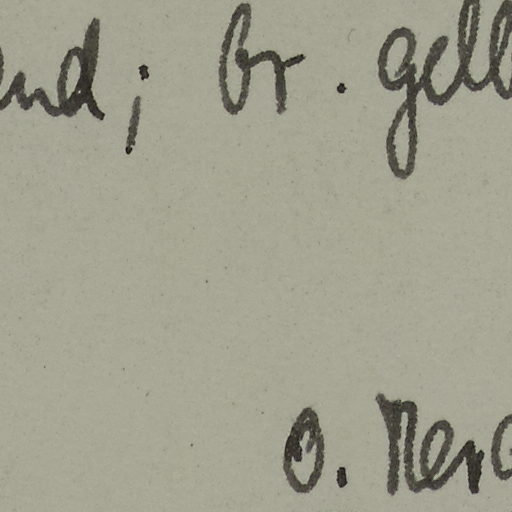 end; br. gelb
O. Mer